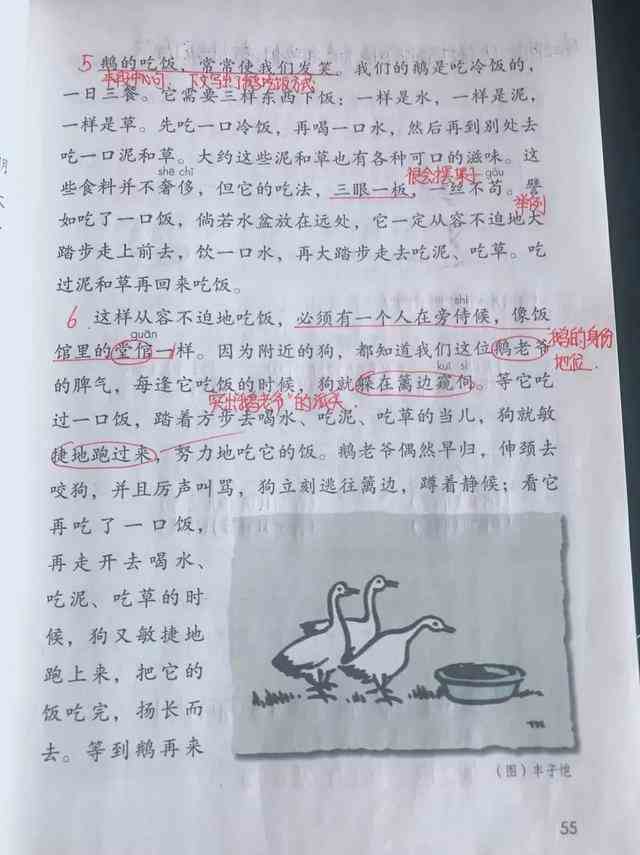 5 鹅的吃饭，常常使我们发笑。我们的鹅是吃冷饭的，
本段中心句，下文写出了鹅吃饭方式
一日三餐。它需要三样东西下饭：一样是水，一样是泥，
一样是草。先吃一口冷饭，再喝一口水，然后再到别处去
吃一口泥和草。大约这些泥和草也有各种可口的滋味。这
shē chǐ
很会摆架子
gǒu
些食料并不奢侈，但它的吃法，三眼一板，一丝不苟。譬
举例
如吃了一口饭，倘若水盆放在远处，它一定从容不迫地大
踏步走上前去，饮一口水，再大踏步走去吃泥、吃草。吃
过泥和草再回来吃饭。
shì
6 这样从容不迫地吃饭，必须有一个人在旁侍候，像饭
guān
鹅的身份
地位
馆里的堂倌一样。因为附近的狗，都知道我们这位鹅老爷
kuī sì
的脾气，每逢它吃饭的时候，狗就躲在篱边窥伺。等它吃
突出"鹅老爷"的派头
过一口饭，踏着方步去喝水、吃泥、吃草的当儿，狗就敏
捷地跑过来，努力地吃它的饭。鹅老爷偶然早归，伸颈去
咬狗，并且厉声叫骂，狗立刻逃往篱边，蹲着静候；看它
再吃了一口饭，
再走开去喝水、
吃泥、吃草的时
候，狗又敏捷地
跑上来，把它的
饭吃完，扬长而
去。等到鹅再来
（图）丰子恺
55